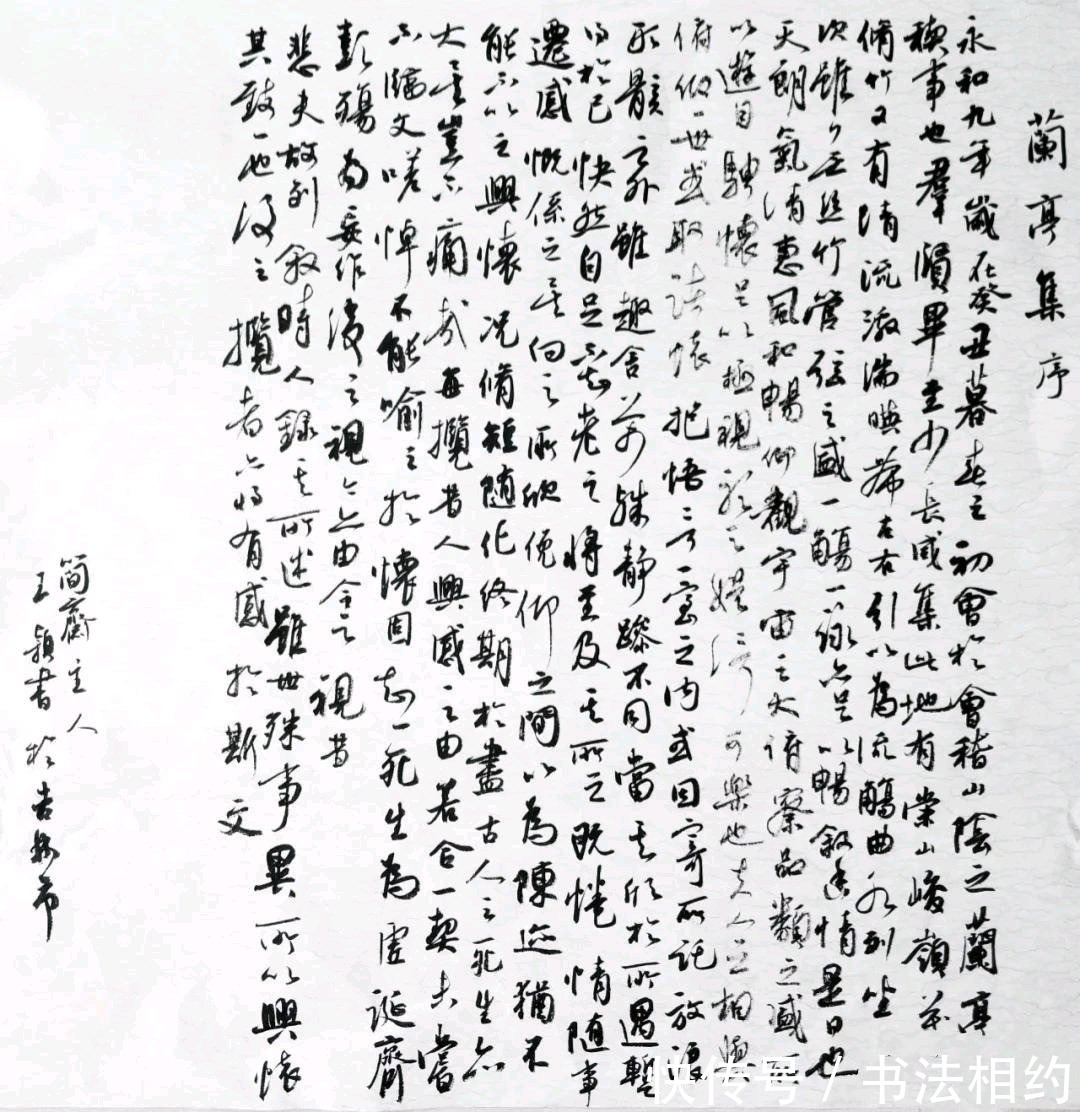 蘭亭集序
永和九年歲在癸丑暮春之初會於會稽山陰之蘭亭
稧事也羣賢畢至少長咸集此地有崇山峻嶺茂
脩竹又有清流激湍暎帶左右引以為流觴曲水列坐
次雖無絲竹管弦之盛一觴一詠亦足以暢敘幽情是日也
天朗氣清惠風和暢仰觀宇宙之大俯察品類之盛所
以遊目騁懷足以極視聽之娛信可樂也夫人之相與
俯仰一世或取諸懷抱悟言一室之內或因寄所託放浪
形骸之外雖趣舍萬殊靜躁不同當其欣於所遇暫
得於己快然自足不知老之將至及其所之既惓情隨事
遷感慨係之矣向之所欣俛仰之間以為陳迹猶不
能不以之興懷況脩短隨化終期於盡古人云死生亦
大矣豈不痛哉每攬昔人興感之由若合一契未嘗
不臨文嗟悼不能喻之於懷固知一死生為虛誕齊
彭殤為妄作後之視今亦由今之視昔
悲夫故列敘時人錄其所述雖世殊事異所以興懷
其致一也後之攬者亦將有感於斯文
簡齋主人
王穎書於吉林市
快传号/书法相约